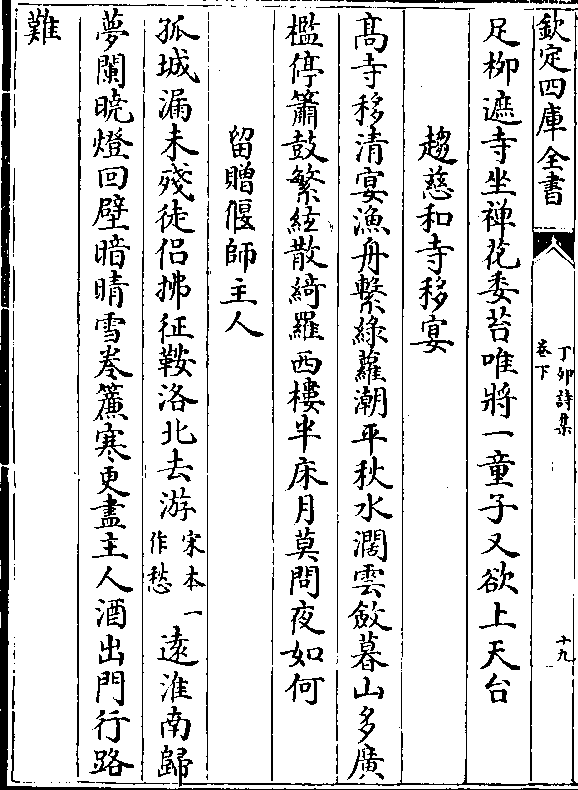 欽定四庫全書
丁卯詩集
卷下
十九
足栁遮寺坐禅花委苔唯將一童子又欲上天台
趙慈和寺移宴
髙寺移清宴漁舟繫綠蘿潮平秋水濶雲斂暮山多廣
檻停簫鼓繁絃散綺羅西樓半床月莫問夜如何
留贈偃師主人
孤城漏未殘徒侣拂征鞍洛北去游
宋本一
作愁
遠淮南歸
夢闌暁燈回壁暗晴雪卷簾寒更盡主人酒出門行路
難